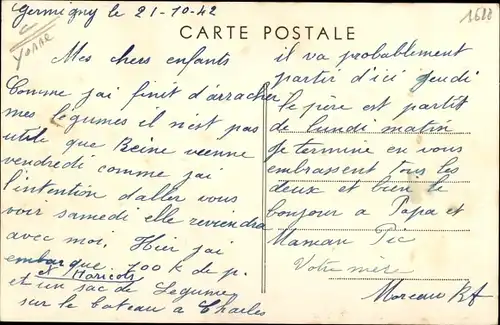 Germigny le 21-10-42
1688
Yonne
CARTE POSTALE
Mes chers enfants
Comme jai finit d'arracher
mes légumes il n'est pas
utile que Reine vienne
vendredi comme j'ai
l'intention d'aller vous
voir samedi elle reviendra
avec moi. Hier jai
embarque 100 K de p.
et Haricots
et un sac de Legume
sur le bateau a Charles
il va probablement
partir d'ici jeudi
le pere est partit
de lundi matin
Je termine en vous
embrassent tous les
deux et bien le
bonjour a Papa et
Maman Pic
Votre mère
Moreau